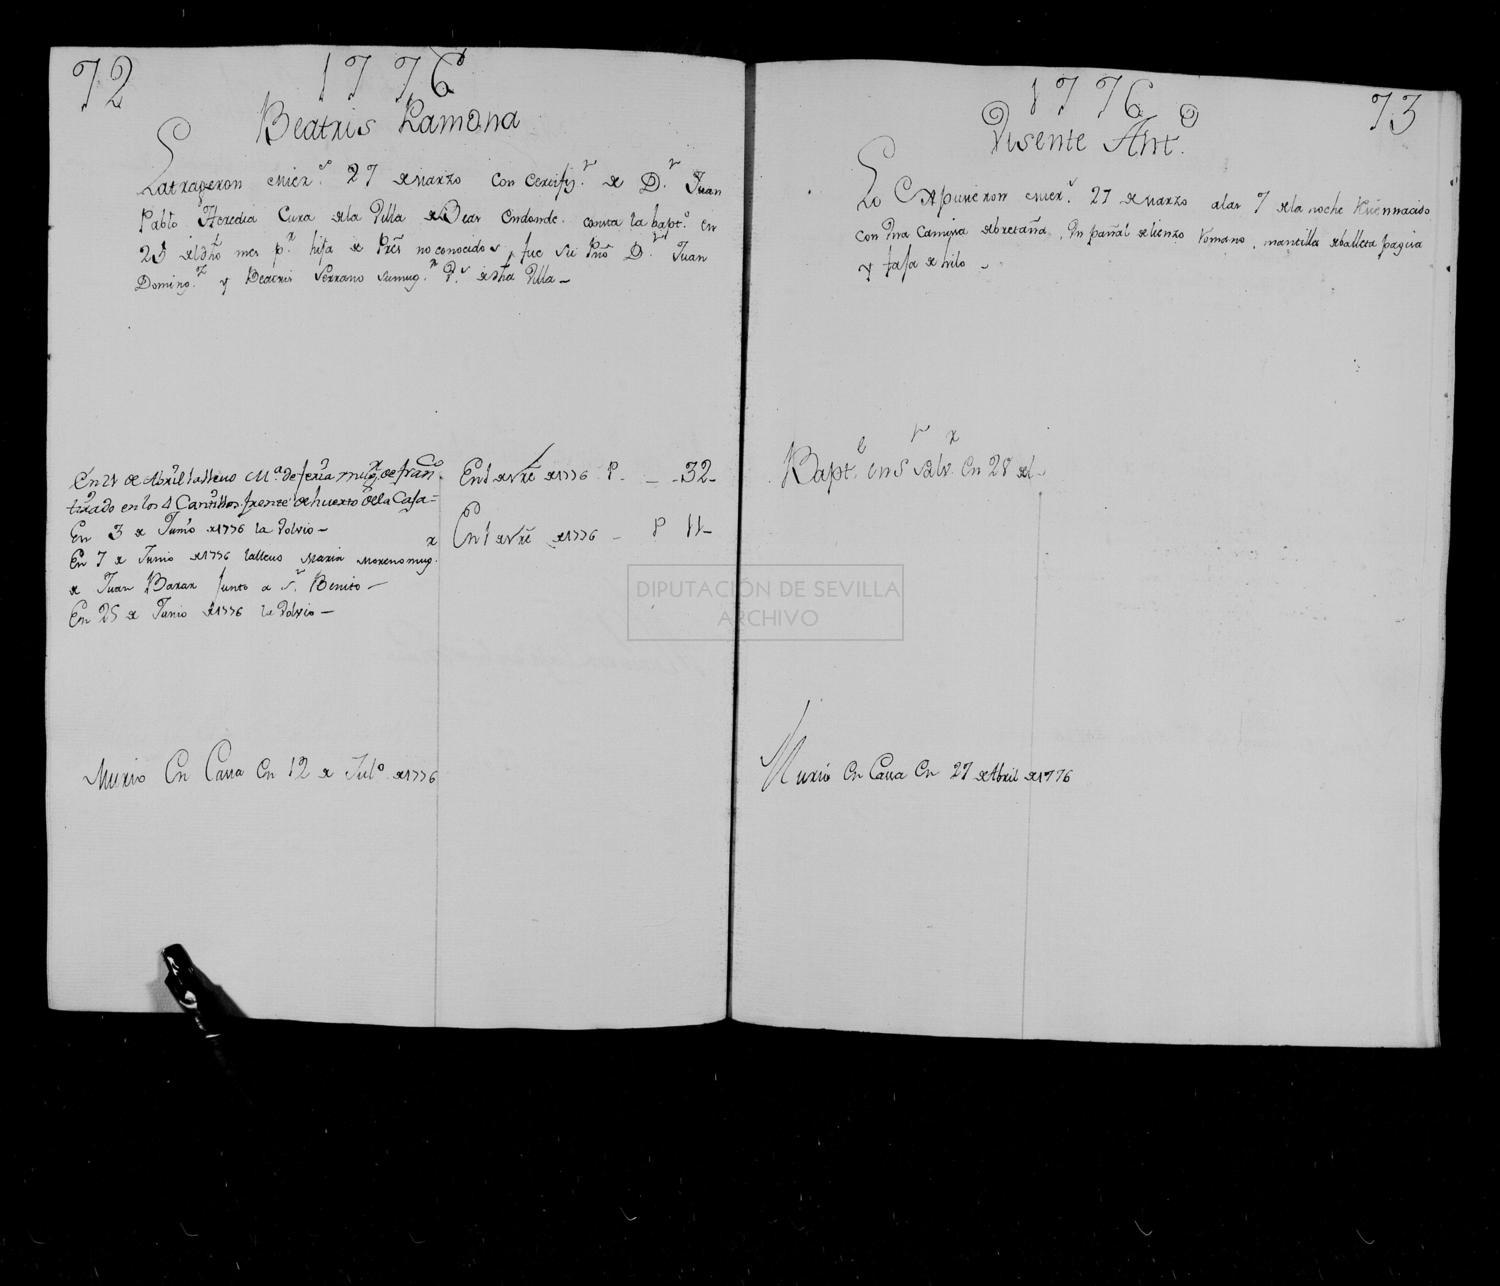 72 1776
Beatris Ramona
La trageron mier.s 27 de Marzo con Certifi.n de D.n Juan
Pablo Heredia Cura de la Villa de Bear endonde consta la bapt.o en
23 del dho mes p.r hija de Pres no conocidos, fue su Pno D.n Juan
Doming.z y Beatris Serrano su mug.r V.s de dha Villa
En 21 de Abril la llevo M.a de feria mug.r de fran.co
tirado en los 4 Cantillos frente del huerto de la Casa=
En 3 de Junio de 1776 la Volvio
En 7 de Junio de 1776 la llevo Maria Moreno mug.r
de Juan Baxar Junto a S.n Benito
En 25 de Junio de 1776 la Volvio
En 1 de Vre de 1776 P. 32
En 1 de Vre de 1776 P 11
Murio En Cassa En 12 de Jul.o de 1776
1776 73
Visente Ant.o
Lo Expusieron mier.s 27 de Marzo a las 7 de la noche Resien nacido
con Vna Camisa de bretaña, Vn pañal de lienzo Romano, mantilla de balleta pagisa
y faja de hilo
Bapt.e en S.r Salv.r En 28 de
Murio En Cassa En 27 de Abril de 1776
DIPUTACIÓN DE SEVILLA
ARCHIVO